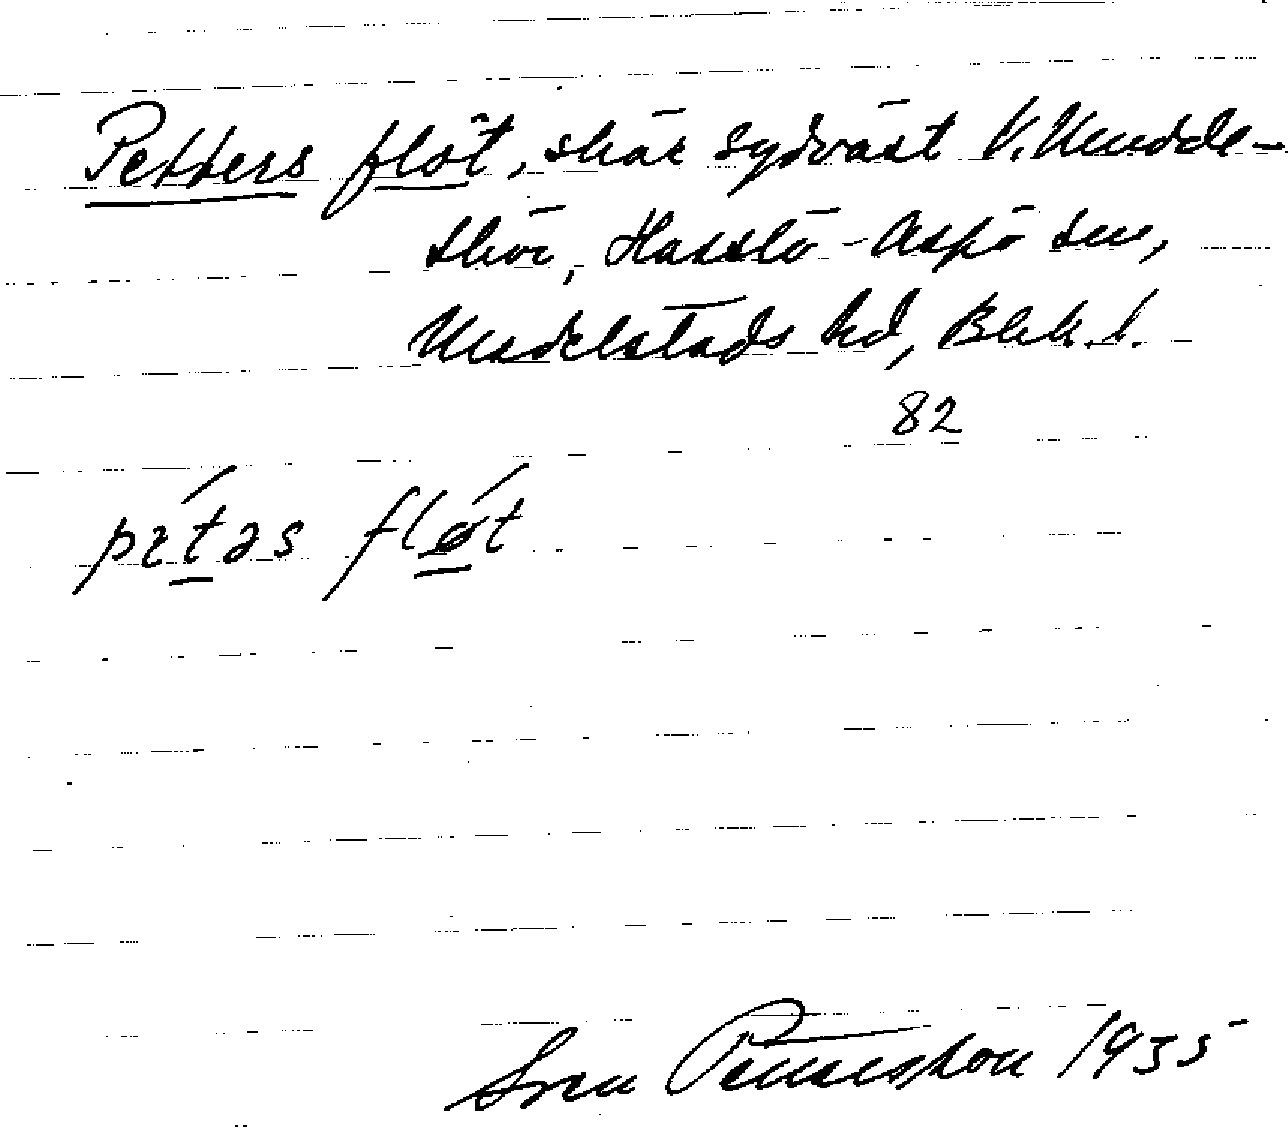 Petters flöt, skär sydväst V.
skär, Hasslö-Aspö sn,
Medelstads hd, Blek. l.
82
pεtəs fløt
Sven 1935